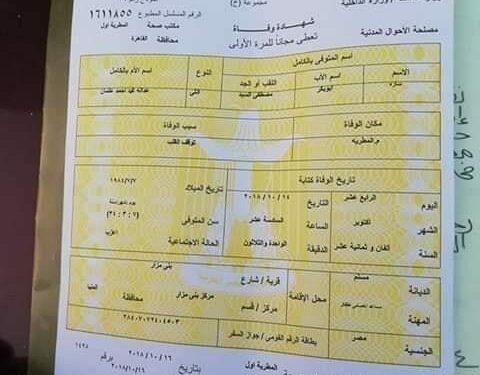 وزارة الداخلية
مجموعة (ج)
الرقم المسلسل المطبوع ١٦١١٨٥٥
مصلحة الأحوال المدنية
مكتب صحة المطرية اول
محافظة القاهرة
شهادة وفاة
تعطى مجاناً للمرة الأولى
اسم المتوفى بالكامل
الاسم
اسم الأب
اللقب أو الجد
النوع
اسم الأم بالكامل
ساره
ابوبكر
مصطفى السيد
انثى
مكان الوفاة
سبب الوفاة
م.المطريه
توقف القلب
تاريخ الوفاة كتابة
٢٠١٨/١٠/١٤
تاريخ الميلاد
١٩٨٤/٧/٧
اليوم
الرابع عشر
التاريخ
الشهر
اكتوبر
الساعة
السادسة عشر
سن المتوفى
يوم شهر سنة
(٧ : ٣ : ٣٤)
السنة
الفان و ثمانية عشر
الدقيقة
الواحدة والثلاثون
الحالة الاجتماعية
اعزب
الديانة
مسلم
محل الإقامة
قرية / شارع
بنى مزار
المهنة
مركز / قسم
مركز بنى مزار
محافظة
المنيا
الجنسية
مصر
بطاقة الرقم القومى / جواز السفر
٢٨٤٠٧٠٧٢٤٠٤٥٠٣
المطرية اول
٢٠١٨/١٠/١٦
بتاريخ
٢٠١٨/١٠/١٦
برقم
١٤٢٨